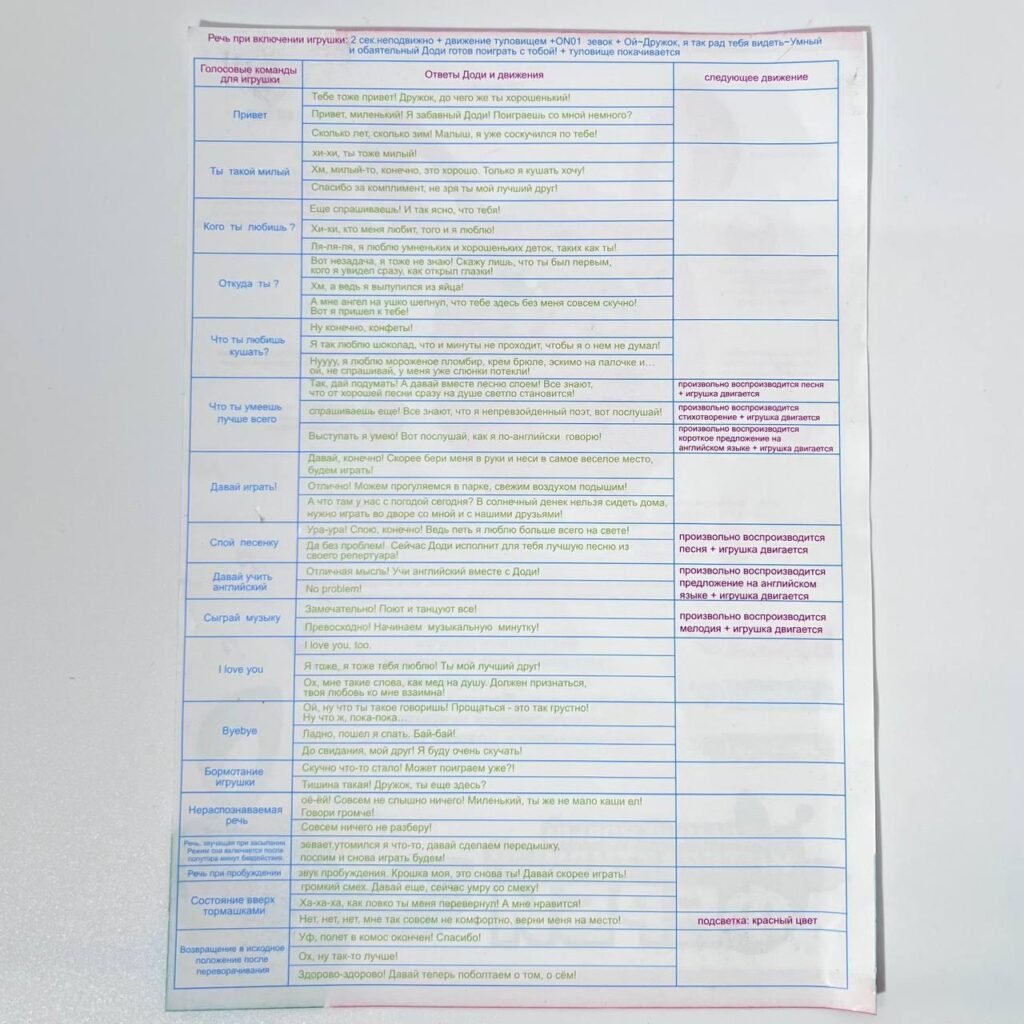 Речь при включении игрушки: 2 сек.неподвижно + движение туловищем +ON01 зевок + Ой~Дружок, я так рад тебя видеть~Умный
и обаятельный Доди готов поиграть с тобой! + туловище покачивается
Голосовые команды
для игрушки
Ответы Доди и движения
следующее движение
Привет
Тебе тоже привет! Дружок, до чего же ты хорошенький!
Привет, миленький! Я забавный Доди! Поиграешь со мной немного?
Сколько лет, сколько зим! Малыш, я уже соскучился по тебе!
Ты такой милый
хи-хи, ты тоже милый!
Хм, милый-то, конечно, это хорошо. Только я кушать хочу!
Спасибо за комплимент, не зря ты мой лучший друг!
Кого ты любишь ?
Еще спрашиваешь! И так ясно, что тебя!
Хи-хи, кто меня любит, того и я люблю!
Ля-ля-ля, я люблю умненьких и хорошеньких деток, таких как ты!
Откуда ты ?
Вот незадача, я тоже не знаю! Скажу лишь, что ты был первым,
кого я увидел сразу, как открыл глазки!
Хм, а ведь я вылупился из яйца!
А мне ангел на ушко шепнул, что тебе здесь без меня совсем скучно!
Вот я пришел к тебе!
Что ты любишь
кушать?
Ну конечно, конфеты!
Я так люблю шоколад, что и минуты не проходит, чтобы я о нем не думал!
Нуууу, я люблю мороженое пломбир, крем брюле, эскимо на палочке и...
ой, не спрашивай, у меня уже слюнки потекли!
Что ты умеешь
лучше всего
Так, дай подумать! А давай вместе песню споем! Все знают,
что от хорошей песни сразу на душе светло становится!
произвольно воспроизводится песня
+ игрушка двигается
спрашиваешь еще! Все знают, что я непревзойденный поэт, вот послушай!
произвольно воспроизводится
стихотворение + игрушка двигается
Выступать я умею! Вот послушай, как я по-английски говорю!
произвольно воспроизводится
короткое предложение на
английском языке + игрушка двигается
Давай играть!
Давай, конечно! Скорее бери меня в руки и неси в самое веселое место,
будем играть!
Отлично! Можем прогуляемся в парке, свежим воздухом подышим!
А что там у нас с погодой сегодня? В солнечный денек нельзя сидеть дома,
нужно играть во дворе со мной и с нашими друзьями!
Спой песенку
Ура-ура! Спою, конечно! Ведь петь я люблю больше всего на свете!
Да без проблем! Сейчас Доди исполнит для тебя лучшую песню из
своего репертуара!
произвольно воспроизводится
песня + игрушка двигается
Давай учить
английский
Отличная мысль! Учи английский вместе с Доди!
No problem!
произвольно воспроизводится
предложение на английском
языке + игрушка двигается
Сыграй музыку
Замечательно! Поют и танцуют все!
Превосходно! Начинаем музыкальную минутку!
произвольно воспроизводится
мелодия + игрушка двигается
I love you
I love you, too.
Я тоже, я тоже тебя люблю! Ты мой лучший друг!
Ох, мне такие слова, как мед на душу. Должен признаться,
твоя любовь ко мне взаимна!
Byebye
Ой, ну что ты такое говоришь! Прощаться - это так грустно!
Ну что ж, пока-пока...
Ладно, пошел я спать. Бай-бай!
До свидания, мой друг! Я буду очень скучать!
Бормотание
игрушки
Скучно что-то стало! Может поиграем уже?!
Тишина такая! Дружок, ты еще здесь?
Нераспознаваемая
речь
ой-ёй! Совсем не слышно ничего! Миленький, ты же не мало каши ел!
Говори громче!
Совсем ничего не разберу!
Речь, звучащая при засыпании
Режим сна включается после
полутора минут бездействия
зевает,утомился я что-то, давай сделаем передышку,
поспим и снова играть будем!
Речь при пробуждении
звук пробуждения. Крошка моя, это снова ты! Давай скорее играть!
Состояние вверх
тормашками
громкий смех. Давай еще, сейчас умру со смеху!
Ха-ха-ха, как ловко ты меня перевернул! А мне нравится!
Нет, нет, нет, мне так совсем не комфортно, верни меня на место!
подсветка: красный цвет
Возвращение в исходное
положение после
переворачивания
Уф, полет в комос окончен! Спасибо!
Ох, ну так-то лучше!
Здорово-здорово! Давай теперь поболтаем о том, о сём!